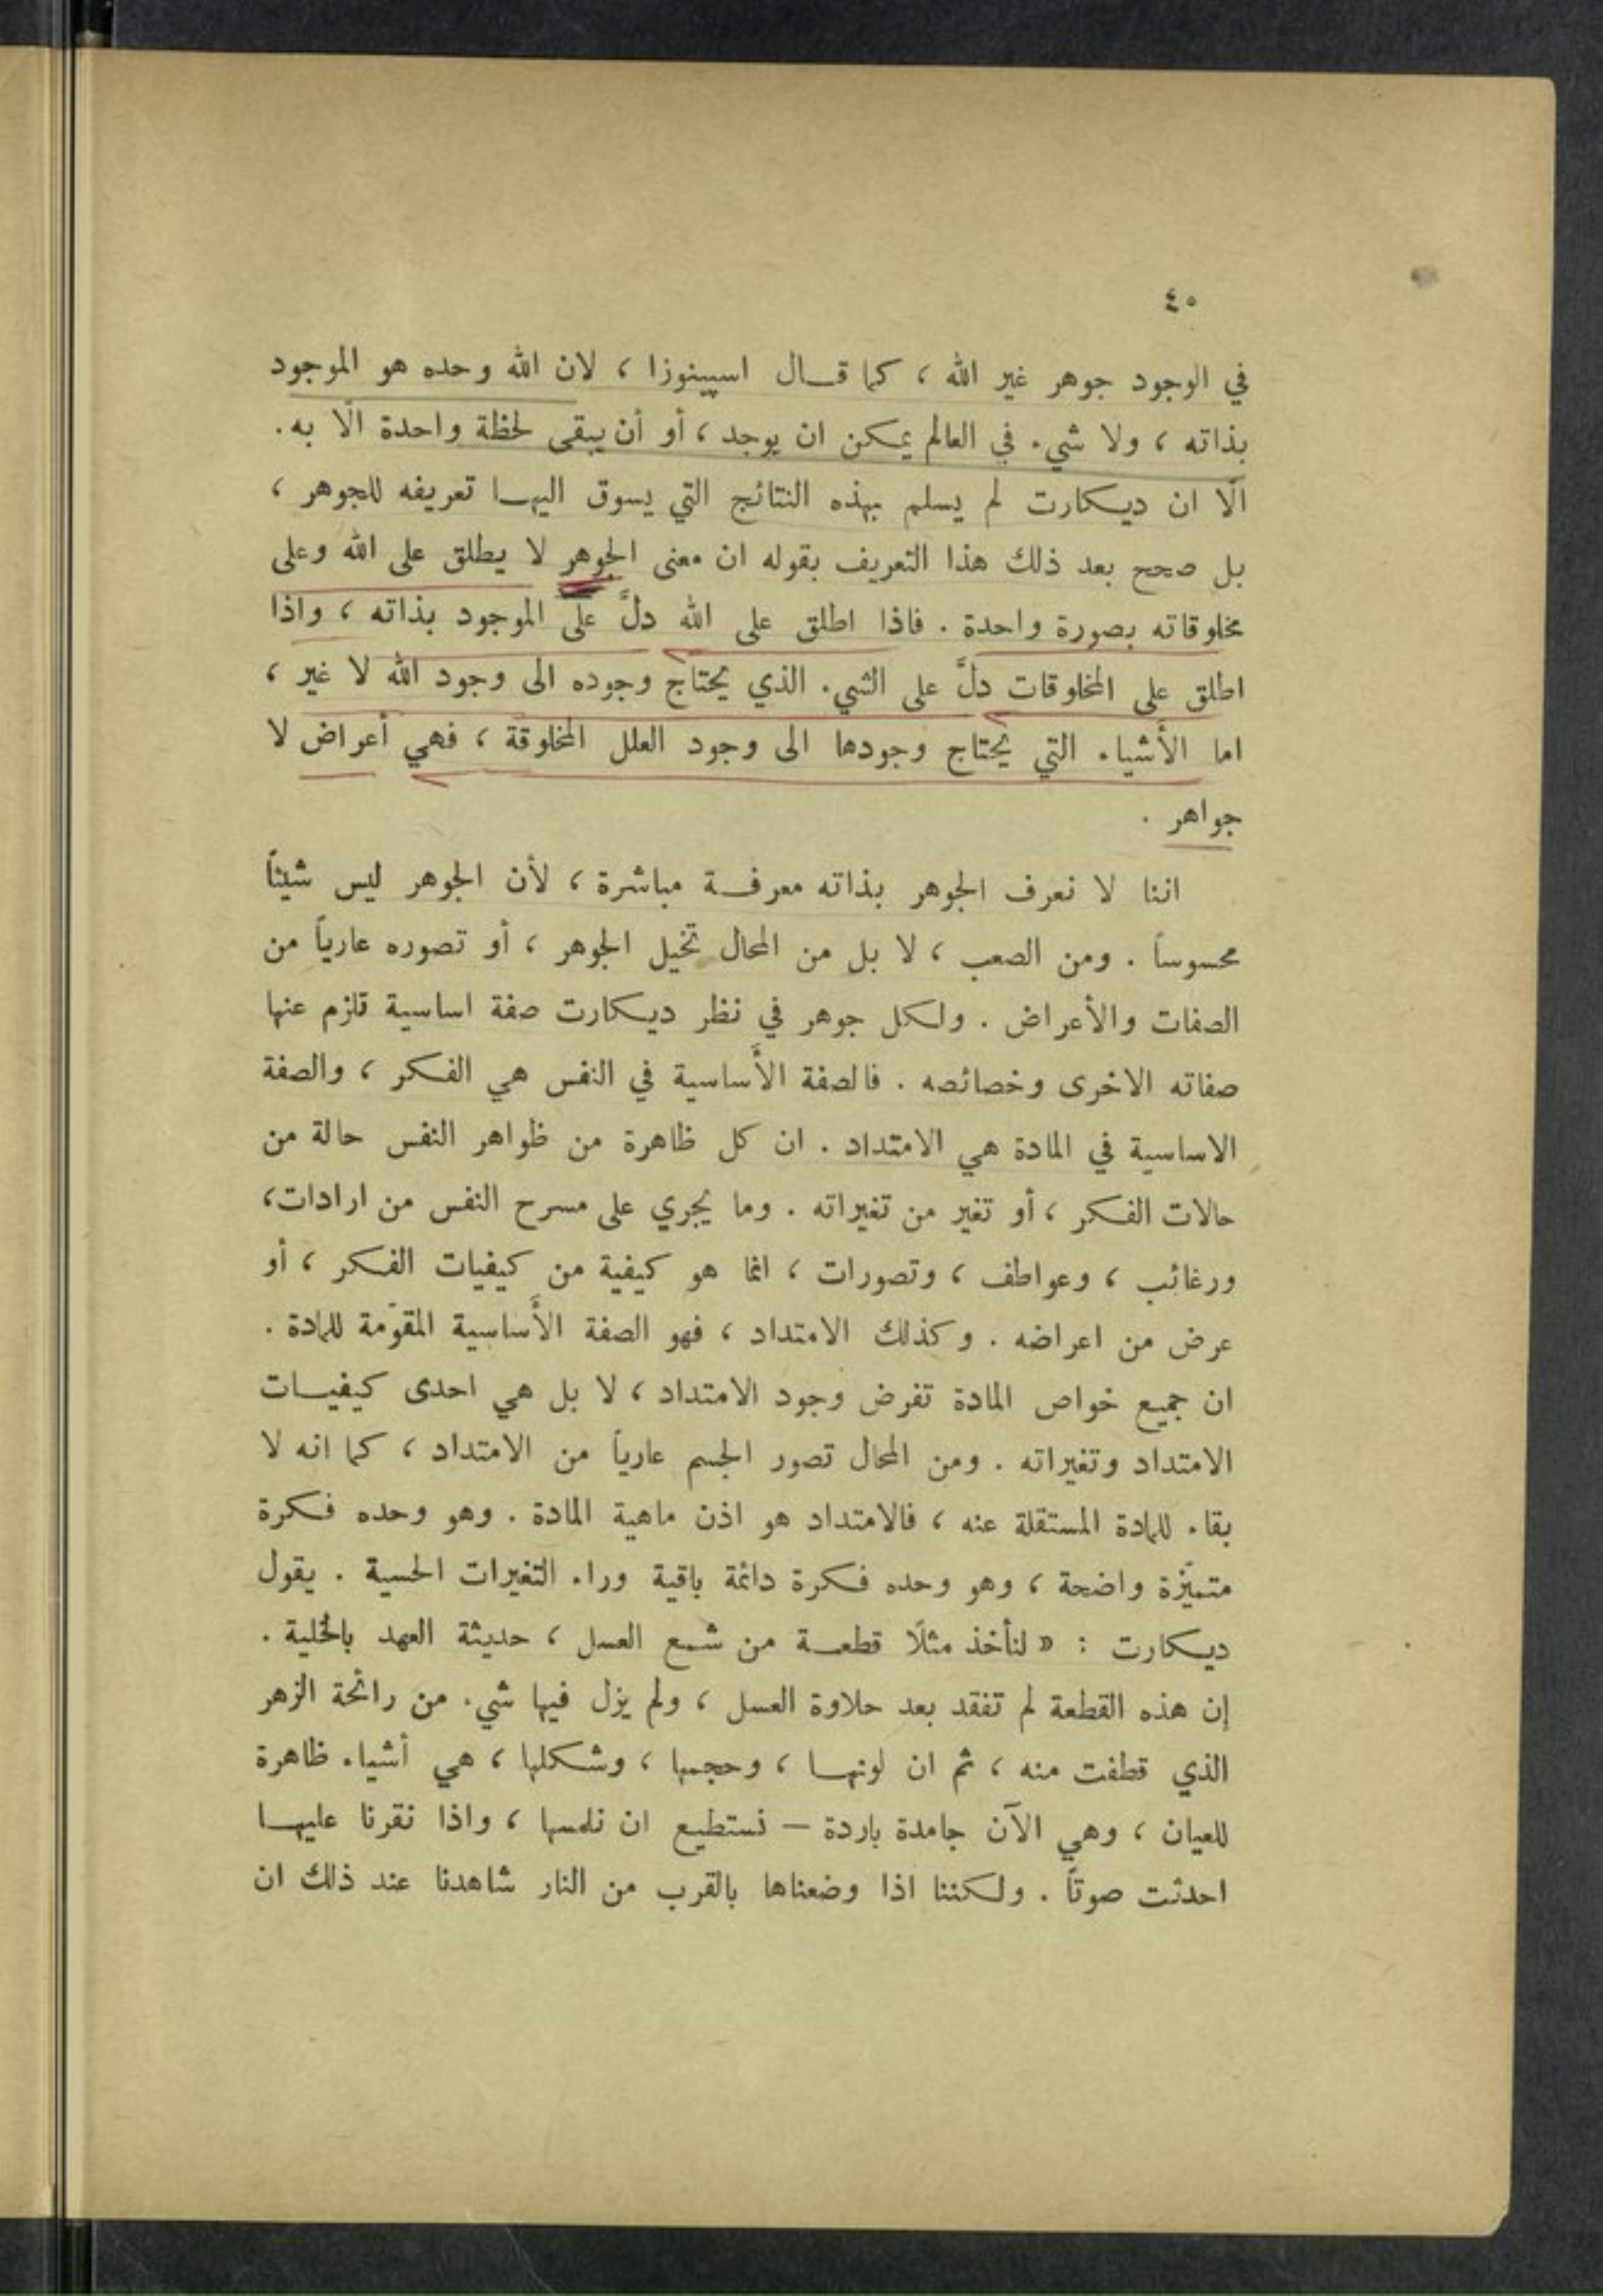 ٤٥
في الوجود جوهر غير الله ، كما قـال اسپينوزا ، لان الله وحده هو الموجود
بذاته ، ولا شيء في العالم يمكن ان يوجد ، أو أن يبقى لحظة واحدة الّا به .
الّا ان ديكارت لم يسلم بهذه النتائج التي يسوق اليهـا تعريفه للجوهر ،
بل صحح بعد ذلك هذا التعريف بقوله ان معنى الجوهر لا يطلق على الله وعلى
مخلوقاته بصورة واحدة . فاذا اطلق على الله دلَّ على الموجود بذاته ، واذا
اطلق على المخلوقات دلَّ على الشيء الذي يحتاج وجوده الى وجود الله لا غير ،
اما الأشياء التي يحتاج وجودها الى وجود العلل المخلوقة ، فهي أعراض لا
جواهر .
اننا لا نعرف الجوهر بذاته معرفـة مباشرة ، لأن الجوهر ليس شيئاً
محسوساً . ومن الصعب ، لا بل من المحال تخيل الجوهر ، أو تصوره عارياً من
الصفات والأعراض . ولكل جوهر في نظر ديكارت صفة اساسية تلزم عنها
صفاته الاخرى وخصائصه . فالصفة الأساسية في النفس هي الفكر ، والصفة
الاساسية في المادة هي الامتداد . ان كل ظاهرة من ظواهر النفس حالة من
حالات الفكر ، أو تغير من تغيراته . وما يجري على مسرح النفس من ارادات ،
ورغائب ، وعواطف ، وتصورات ، انما هو كيفية من كيفيات الفكر ، أو
عرض من اعراضه . وكذلك الامتداد ، فهو الصفة الأساسية المقوّمة للمادة .
ان جميع خواص المادة تفرض وجود الامتداد ، لا بل هي احدى كيفيـات
الامتداد وتغيراته . ومن المحال تصور الجسم عارياً من الامتداد ، كما انه لا
بقاء للمادة المستقلة عنه ، فالامتداد هو اذن ماهية المادة . وهو وحده فكرة
متميّزة واضحة ، وهو وحده فكرة دائمة باقية وراء التغيرات الحسية . يقول
ديكارت : « لنأخذ مثلًا قطعـة من شمع العسل ، حديثة العهد بالخلية .
إن هذه القطعة لم تفقد بعد حلاوة العسل ، ولم يزل فيها شيء من رائحة الزهر
الذي قطفت منه ، ثم ان لونهـا ، وحجمها ، وشكلها ، هي أشياء ظاهرة
للعيان ، وهي الآن جامدة باردة — نستطيع ان نلمسها ، واذا نقرنا عليهـا
احدثت صوتاً . ولكننا اذا وضعناها بالقرب من النار شاهدنا عند ذلك ان